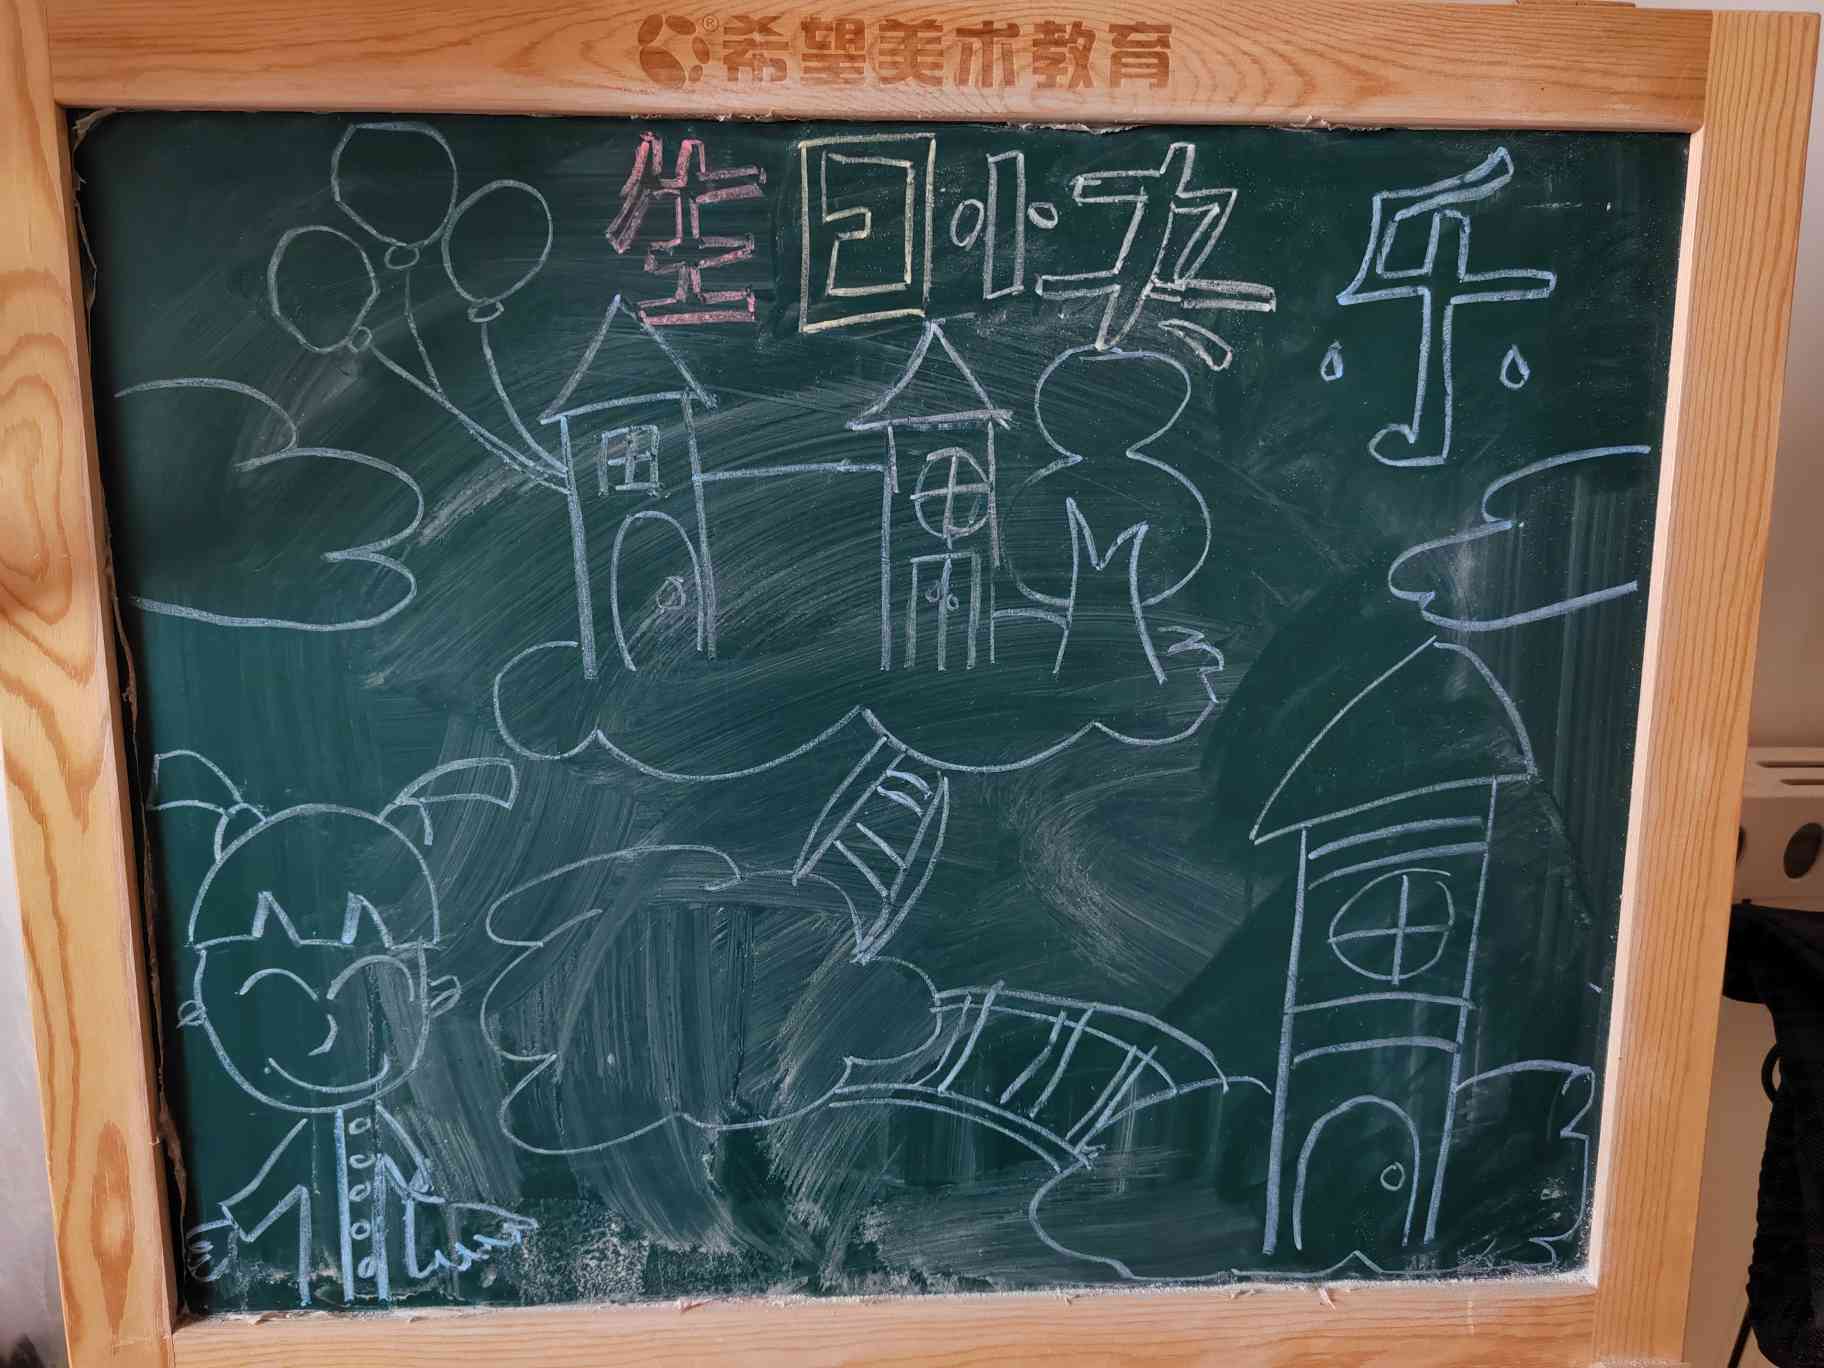 ®希望美术教育
生日快乐